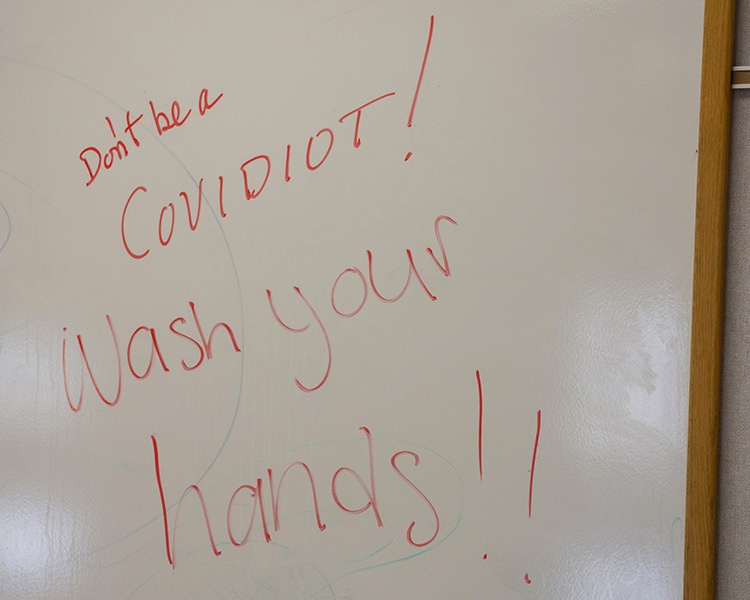 Don't be a
COVIDIOT!
Wash your
hands!!